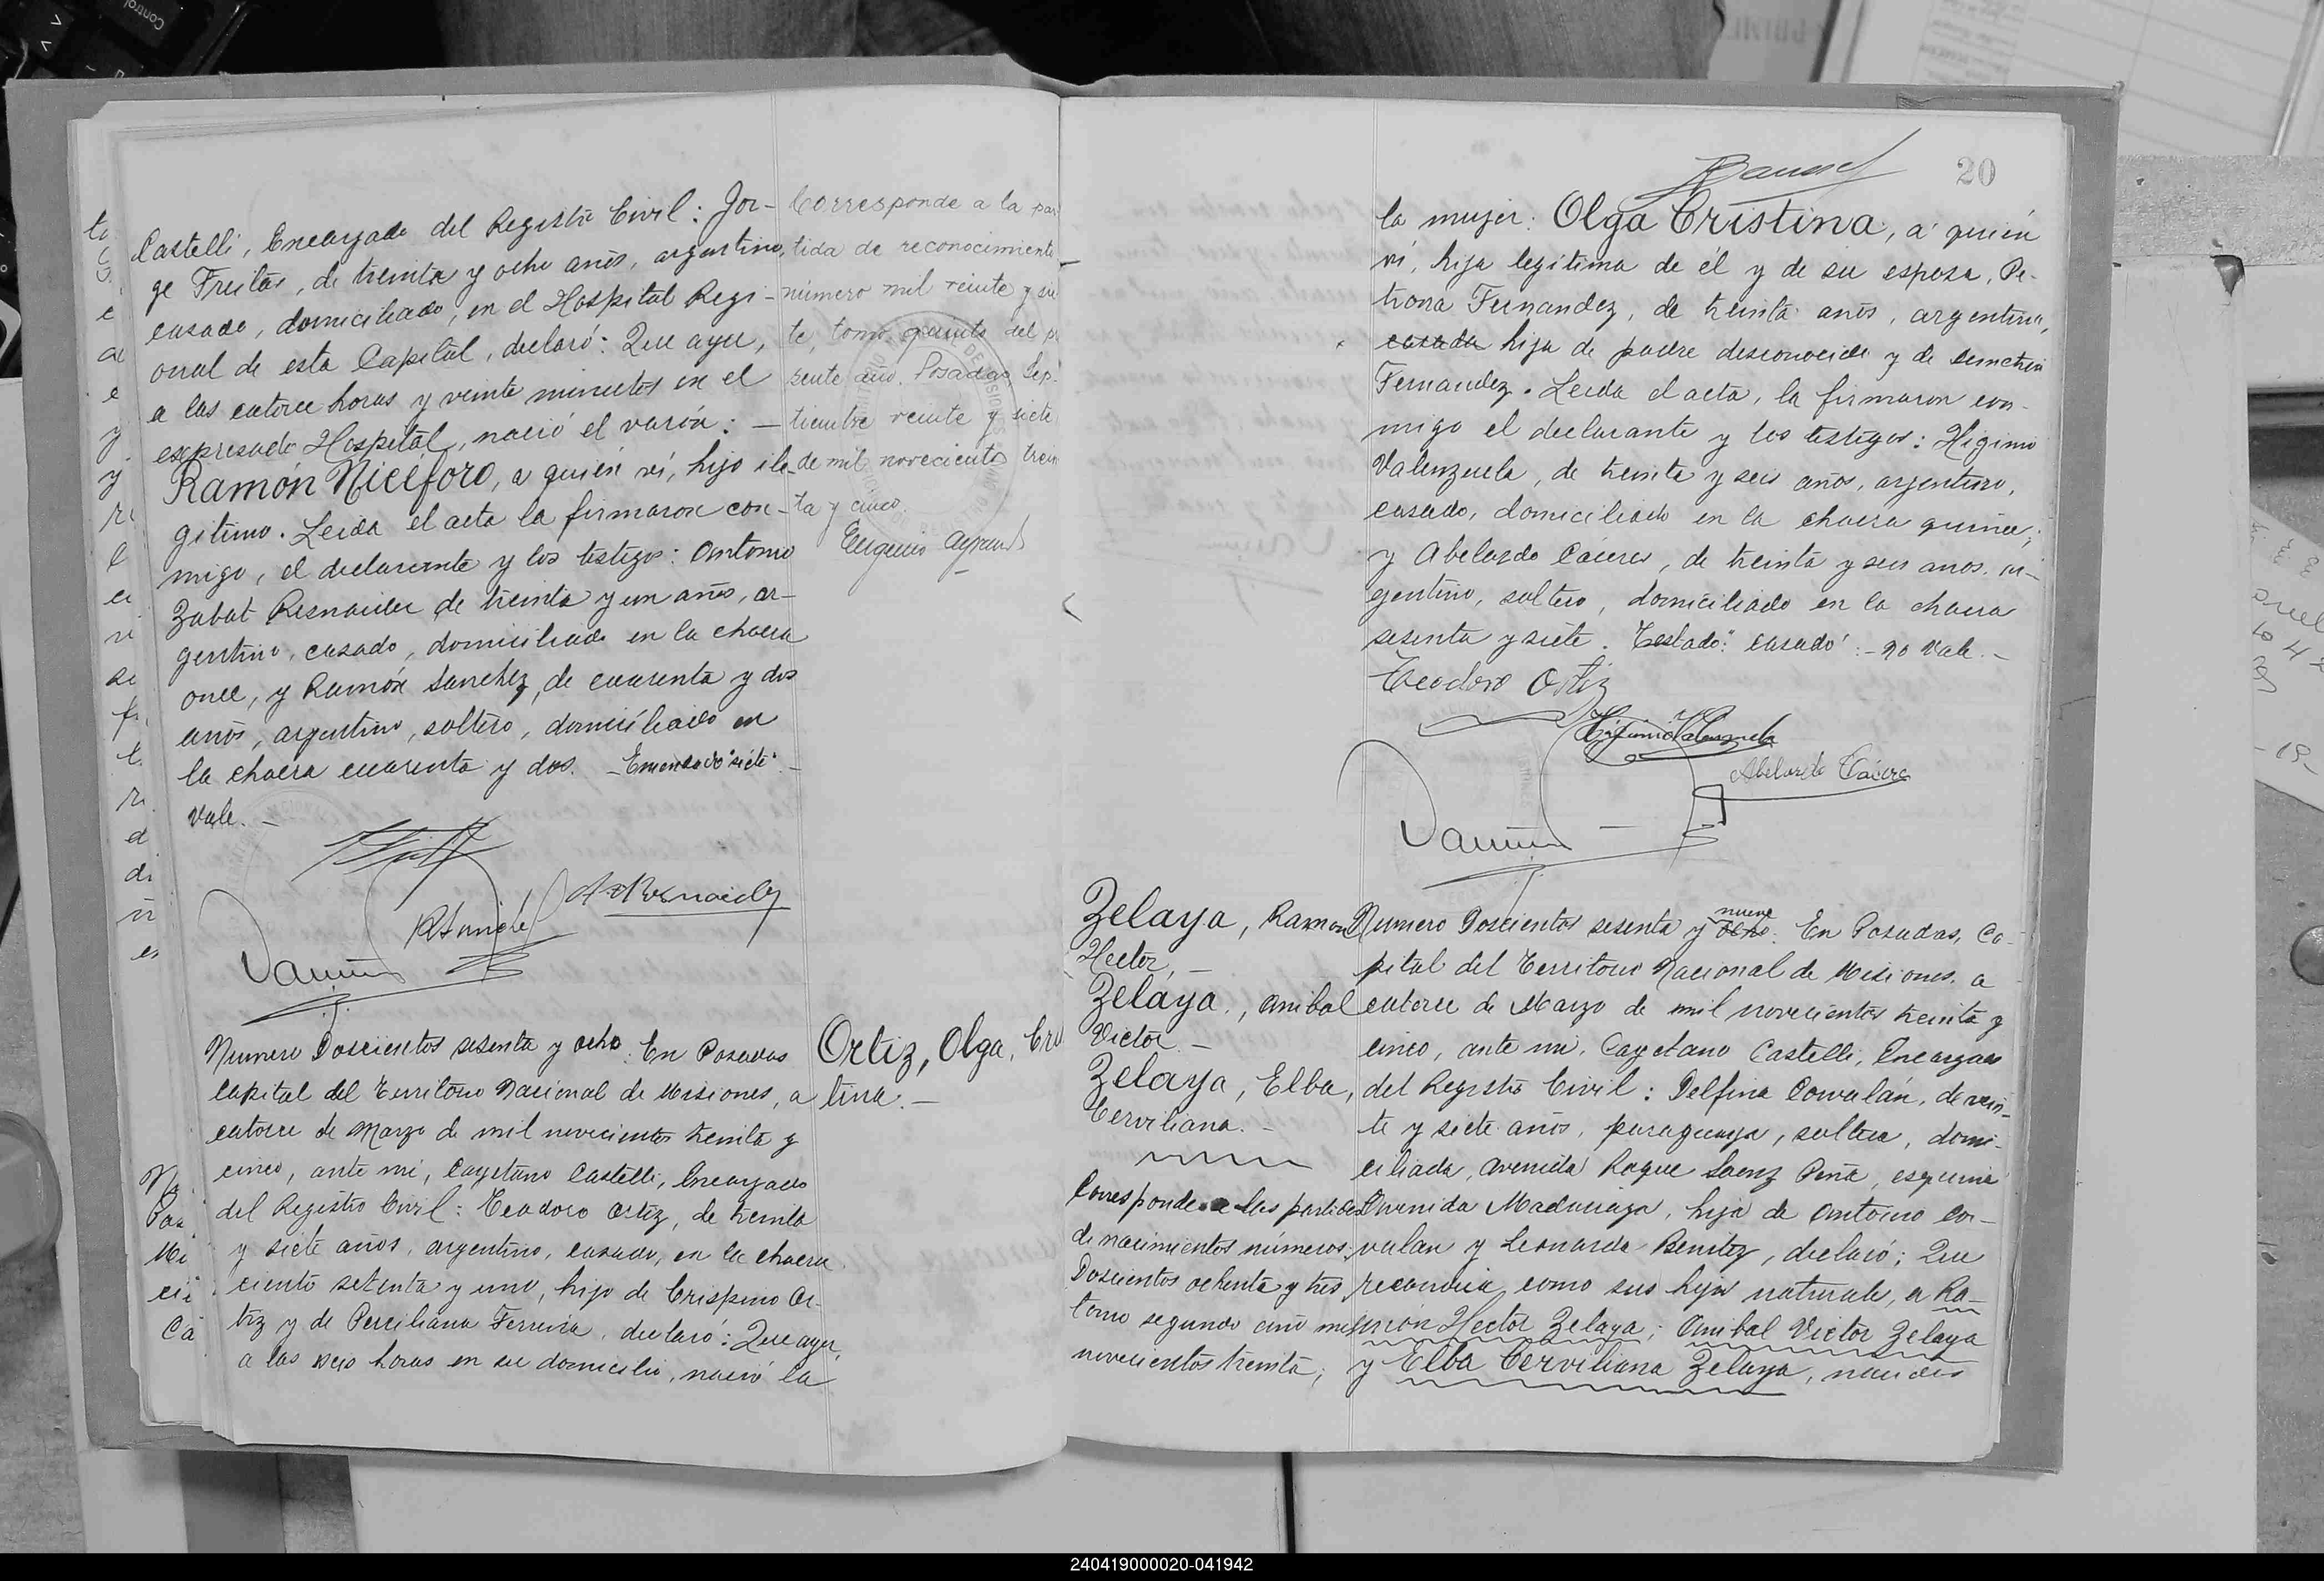 Castelli, Encargado del Registro Civil: Jor-
ge Freitas, de treinta y ocho años, argentino,
casado, domiciliado, en el Hospital Regi-
onal de esta Capital, declaró: Que ayer,
a las catorce horas y veinte minutos en el
expresado Hospital, nació el varón: —
Ramón Niceforo, a quién ví, hijo ile-
gitimo. Leida el acta la firmaron con-
migo, el declarante y los testigos: Antonio
Zabat Resnaider de treinta y un años, ar-
gentino, casado, domiciliado en la chacra
once, y Ramón Sanchez, de cuarenta y dos
años, argentino, soltero, domiciliado en
la chacra cuarenta y dos. - Emendado "siete" -
Vale. -
Corresponde a la par
tida de reconocimiento
número mil veinte y sie
te, tomo quinto del p
sente año. Posadas, Sep-
tiembre veinte y siete
de mil novecientos trein
ta y cinco.
Eugenio
Numero Doscientos sesenta y ocho. En Posadas
Capital del Territorio Nacional de Misiones, a
catorce de Marzo de mil novecientos treinta y
cinco, ante mi, Cayetano Castelli, Encargado
del Registro Civil: Teodoro Ortiz, de treinta
y siete años, argentino, casado, en la chacra
ciento setenta y uno, hijo de Crispino Or-
tiz y de Perciliana Ferreira, declaró: Que ayer,
a las seis horas en su domicilio, nació la
Ortiz, Olga, Cris
tina. —
20
la mujer: Olga Cristina, a quién
ví, hija legítima de él y de su esposa, Pe-
trona Fernandez, de treinta años, argentina,
casada hija de padre desconocido y de Demetria
Fernandez. Leida el acta, la firmaron con-
migo el declarante y los testigos: Higinio
Valenzuela, de treinta y seis años, argentino,
casado, domiciliado en la chacra quince;
y Abelardo Cáceres, de treinta y seis años, ar-
gentino, soltero, domiciliado en la chacra
sesenta y siete. Testado: "casado": - no vale. -
Teodoro Ortiz
Higinio Valenzuela
Abelardo Cáceres
Zelaya, Ramon
Hector, —
Zelaya, Anibal
Victor. —
Zelaya, Elba,
Cerviliana. -
Corresponde a las partidas
de nacimientos números:
Doscientos ochenta y tres
tomo segundo año mil
novecientos treinta;
nueve
Numero Doscientos sesenta y ocho. En Posadas, Ca-
pital del Territorio Nacional de Misiones, a
catorce de Marzo de mil novecientos treinta y
cinco, ante mi, Cayetano Castelli, Encargado
del Registro Civil: Delfina Corvalán, de vein-
te y siete años, paraguaya, soltera, domi-
ciliada, Avenida Roque Saenz Peña, esquina
Avenida Madariaga, hija de Antonio Cor-
valan y Leonarda Benitez, declaró: Que
reconocia como sus hijos naturales, a Ra-
món Hector Zelaya; Anibal Victor Zelaya
y Elba Cerviliana Zelaya, nacidos
240419000020-041942